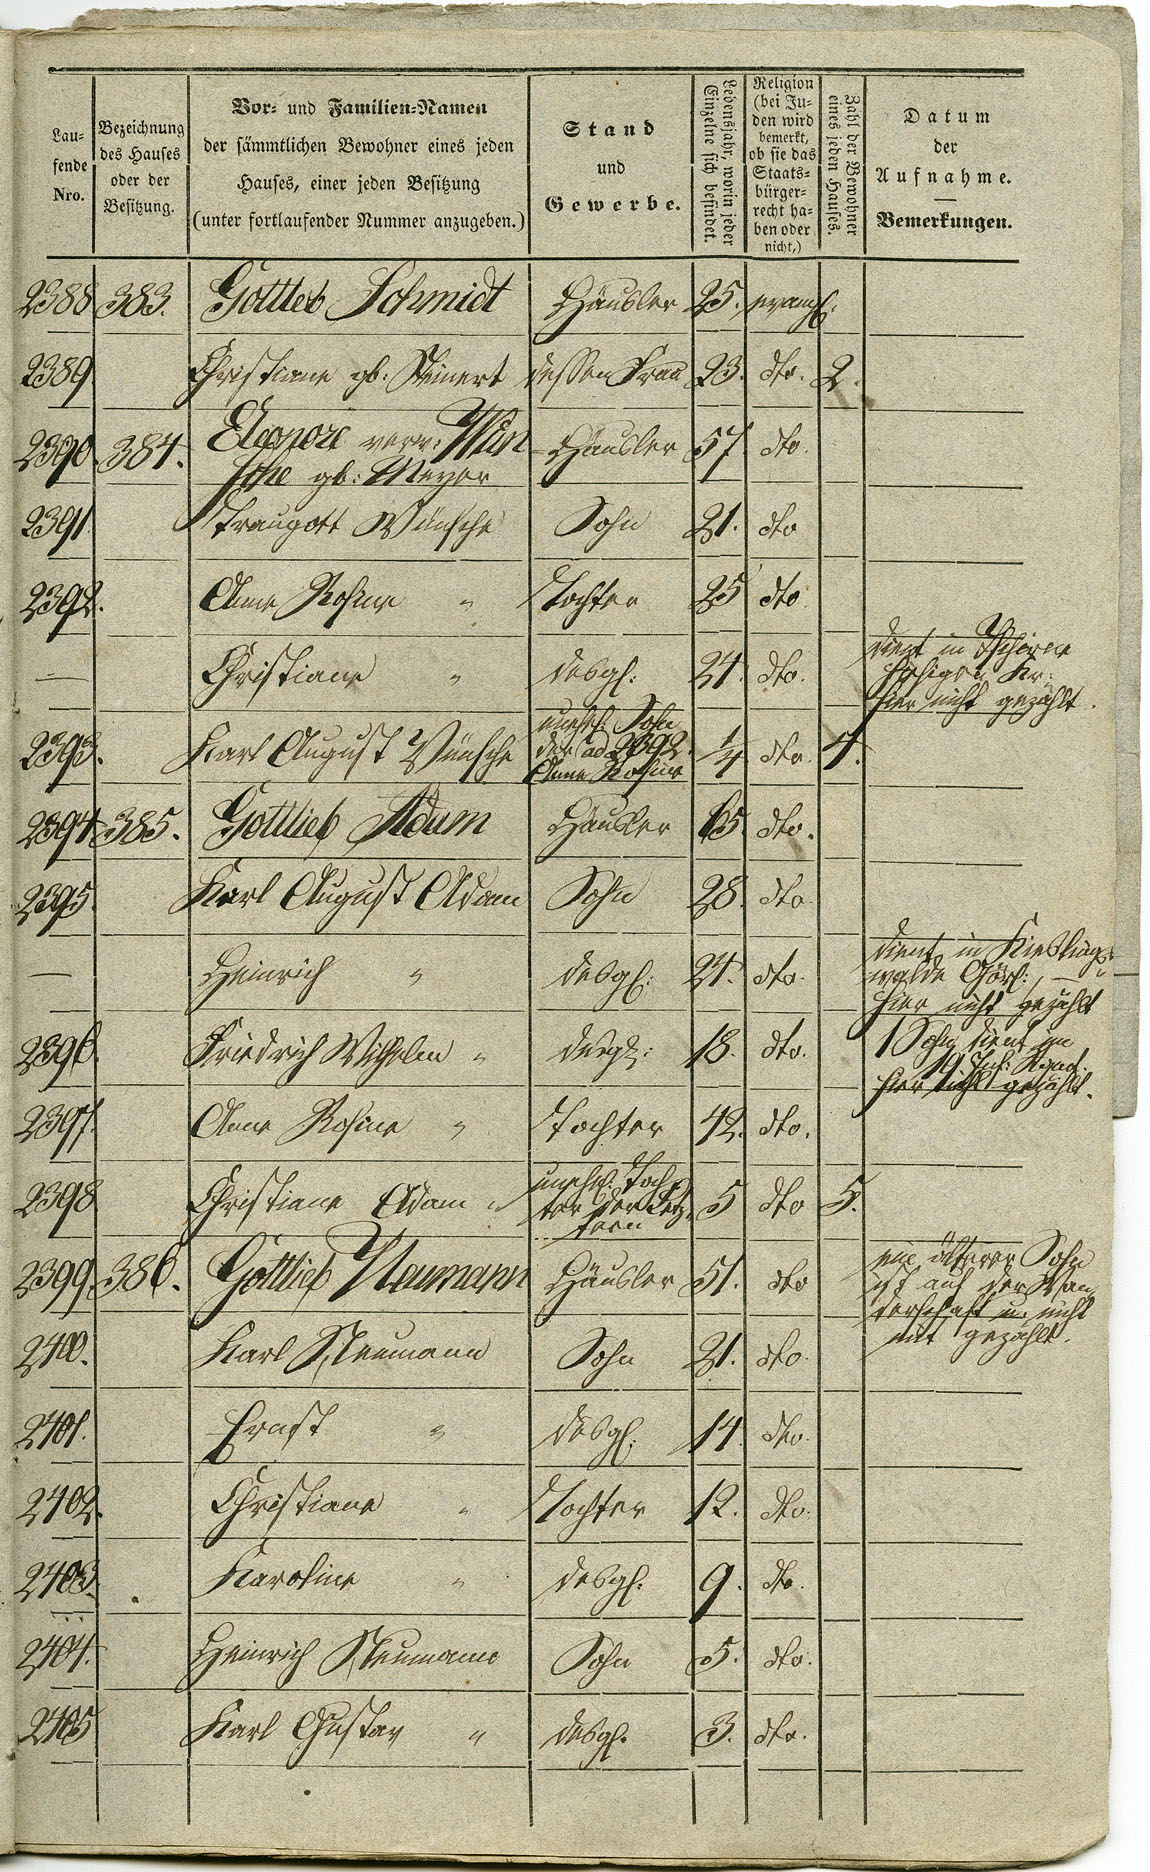 Lau-
fende
Nro.
Bezeichnung
des Hauses
oder der
Besitzung.
Vor- und Familien-Namen
der sämmtlichen Bewohner eines jeden
Hauses, einer jeden Besitzung
(unter fortlaufender Nummer anzugeben.)
Stand
und
Gewerbe.
Lebensjahr, worin jeder
Einzelne sich befindet.
Religion
(bei Ju-
den wird
bemerkt,
ob sie das
Staats-
bürger-
recht ha-
ben oder
nicht,)
Zahl der Bewohner
eines jeden Hauses.
Datum
der
Aufnahme.
Bemerkungen.
2388 383. Gottlieb Schmidt Häusler 25. evangl:
2389 Christiane gb. Steinert dessen Frau 23. dto. 2.
2390. 384. Eleonore verw: Wün Häusler 57 dto.
sche gb: Meyer
2391. Traugott Wünsche Sohn 21. dto
2392. Anne Rosine " Tochter 25 dto.
— Christiane " desgl: 24 dto. dient in
hier nicht gezählt.
2393. Karl August Wünsche unehl. Sohn der ad 2392. Anne Rosine 1/4 dto. 4.
2394 385. Gottlieb Adam Häusler 65. dto.
2395. Karl August Adam Sohn 28. dto.
— Heinrich " desgl: 24. dto. dient in Kieslings-
walde Görl:
hier nicht gezählt
2396. Friedrich Wilhelm " desgl: 18. dto. 1 Sohn dient im
19 Inf: Regmt.
hier nicht gezählt.
2397. Anne Rosine " Tochter 42. dto.
2398 Christiane Adam " unehl. Toch
ter der Letz-
tern 5 dto 5.
2399. 386. Gottlieb Neumann Häusler 51. dto ein älterer Sohn
ist auf der Wan
derschaft u. nicht
mit gezählt.
2400. Karl Neumann Sohn 21. dto.
2401. Ernst " desgl. 14. dto.
2402. Christiane " Tochter 12. dto.
2403. Karoline " desgl. 9. dto.
2404. Heinrich Neumann Sohn 5. dto.
2405 Karl Gustav " desgl. 3. dto.